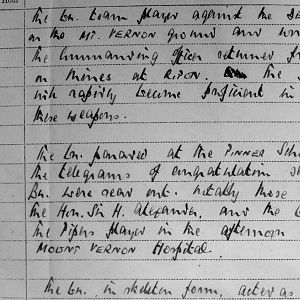 Hour
The Bn. team played against the
on the MT. VERNON ground and
The Commanding Officer returned
on Mines at RIPON. The
will rapidly become proficient in
these weapons.
The Bn. paraded at the PINNER
the telegrams of congratulation
Bn. were read out. notably those
the Hon. Sir H. Alexander, and the
the Pipes played in the afternoon
MOUNT VERNON Hospital.
The Bn. in skeleton form, acted as